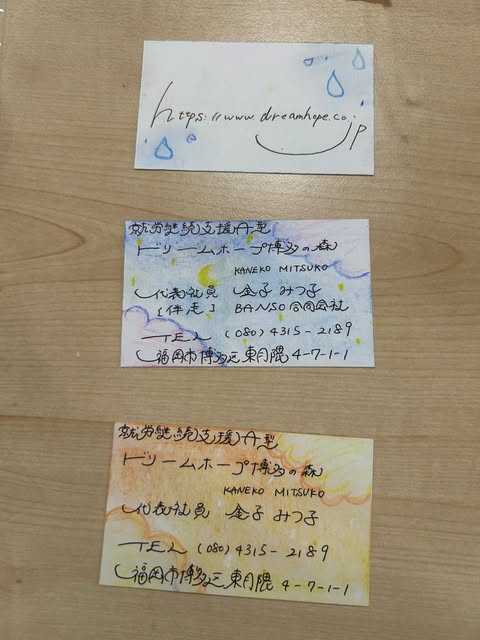 https://www.dreamhope.co.jp
就労継続支援A型
ドリームホープ博多の森
KANEKO MITSUKO
代表社員 金子 みつ子
[伴走] BANSO合同会社
TEL (080)4315-2189
福岡市博多区東月隈 4-7-1-1
就労継続支援A型
ドリームホープ博多の森
KANEKO MITSUKO
代表社員 金子 みつ子
TEL (080)4315-2189
福岡市博多区東月隈 4-7-1-1